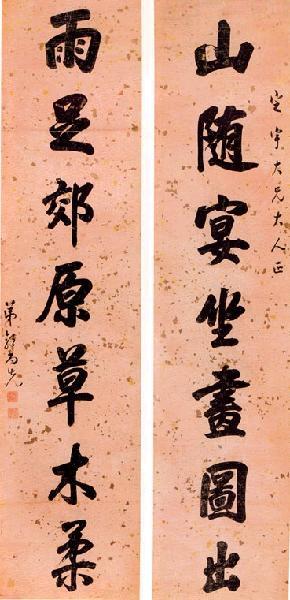 定宇大兄大人正
山随宴坐畫圖出
雨足郊原草木柔
弟